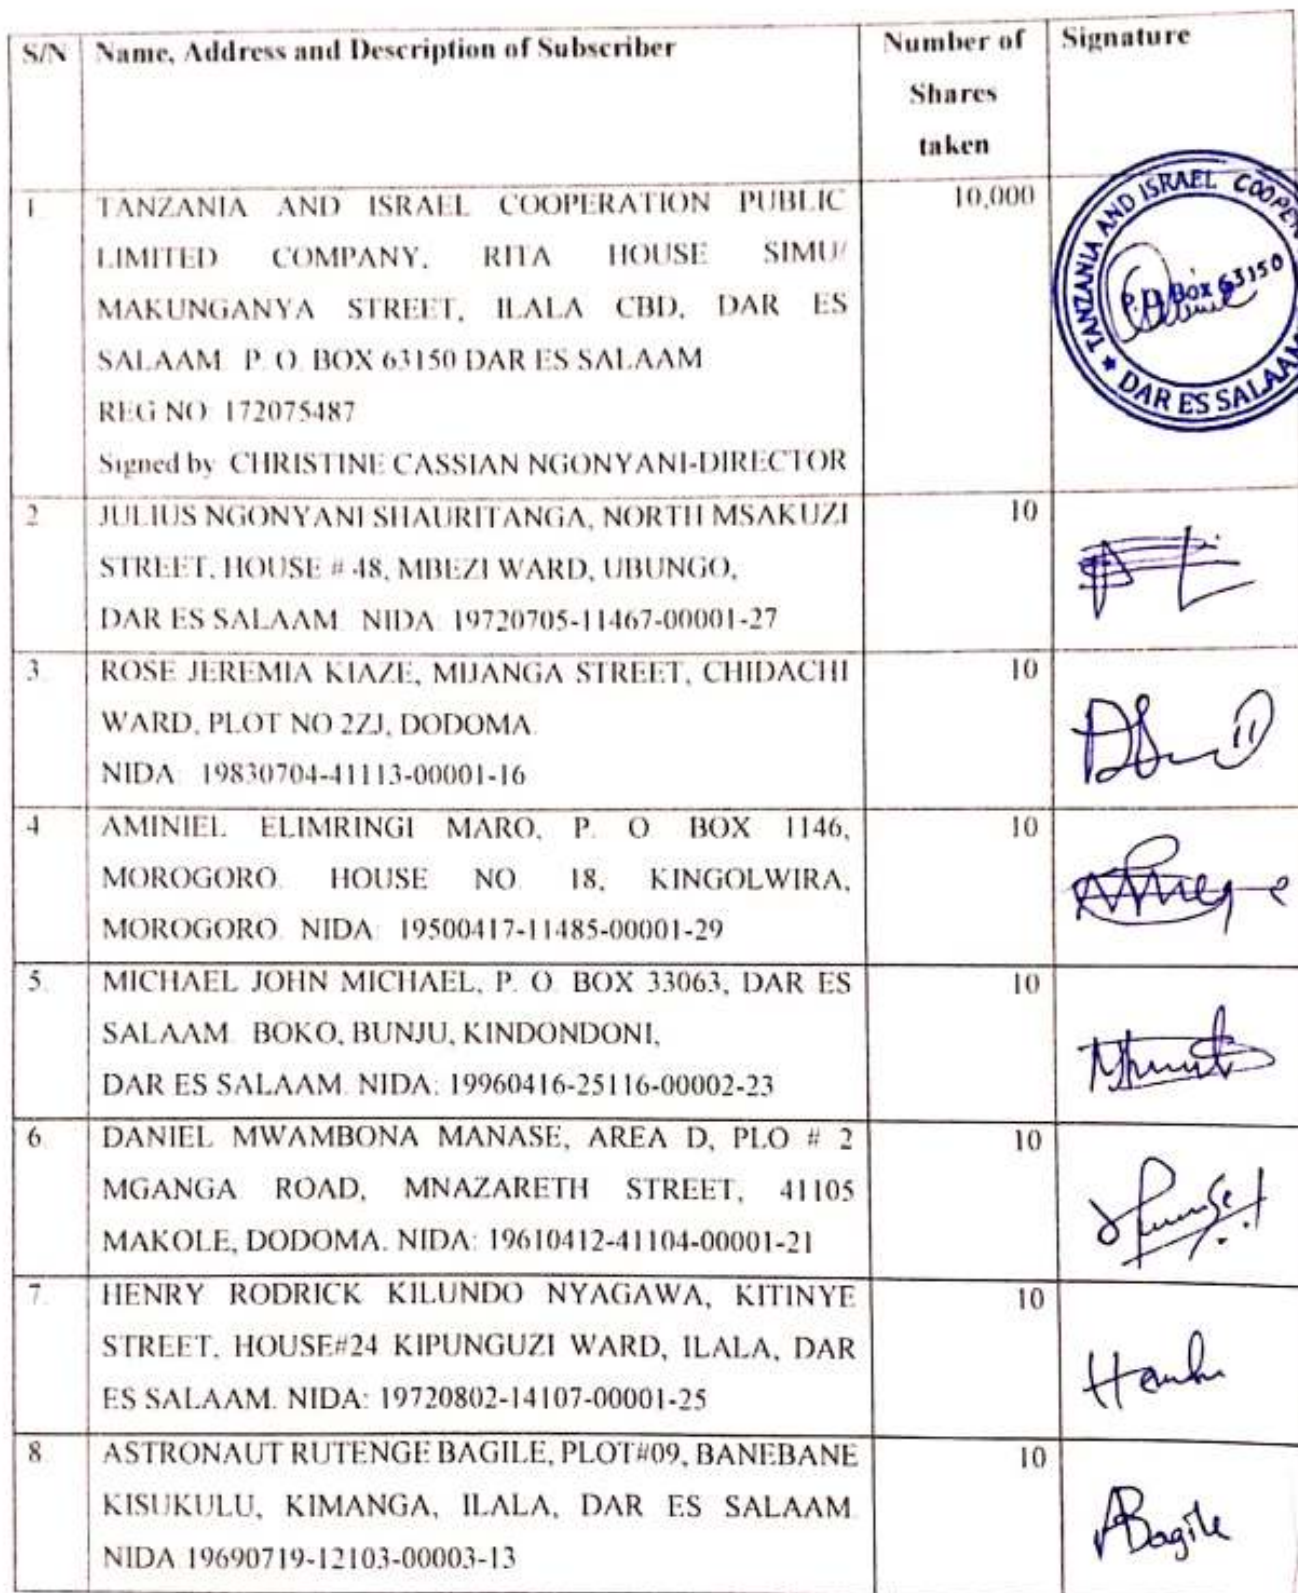 S/N Name, Address and Description of Subscriber Number of Signature
Shares
taken
1 TANZANIA AND ISRAEL COOPERATION PUBLIC 10,000
LIMITED COMPANY, RITA HOUSE SIMU/
MAKUNGANYA STREET, ILALA CBD, DAR ES
SALAAM P. O. BOX 63150 DAR ES SALAAM
REG NO 172075487
Signed by CHRISTINE CASSIAN NGONYANI-DIRECTOR
TANZANIA AND ISRAEL
P.O Box 63150
★ DAR ES SALAAM
2 JULIUS NGONYANI SHAURITANGA, NORTH MSAKUZI 10
STREET, HOUSE # 48, MBEZI WARD, UBUNGO,
DAR ES SALAAM NIDA: 19720705-11467-00001-27
3. ROSE JEREMIA KIAZE, MIJANGA STREET, CHIDACHI 10
WARD, PLOT NO 2ZJ, DODOMA.
NIDA 19830704-41113-00001-16
4 AMINIEL ELIMRINGI MARO, P. O BOX 1146, 10
MOROGORO. HOUSE NO. 18, KINGOLWIRA,
MOROGORO. NIDA: 19500417-11485-00001-29
5. MICHAEL JOHN MICHAEL, P. O. BOX 33063, DAR ES 10
SALAAM. BOKO, BUNJU, KINDONDONI,
DAR ES SALAAM. NIDA: 19960416-25116-00002-23
6. DANIEL MWAMBONA MANASE, AREA D, PLO # 2 10
MGANGA ROAD, MNAZARETH STREET, 41105
MAKOLE, DODOMA. NIDA: 19610412-41104-00001-21
7. HENRY RODRICK KILUNDO NYAGAWA, KITINYE 10
STREET, HOUSE#24 KIPUNGUZI WARD, ILALA, DAR
ES SALAAM. NIDA: 19720802-14107-00001-25
8. ASTRONAUT RUTENGE BAGILE, PLOT#09, BANEBANE 10
KISUKULU, KIMANGA, ILALA, DAR ES SALAAM.
NIDA 19690719-12103-00003-13
ABagile